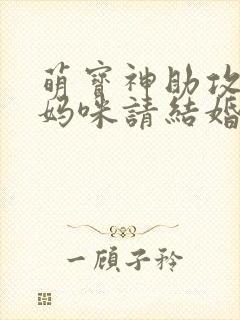 萌寶神助攻
媽咪請結婚
一顧子衿